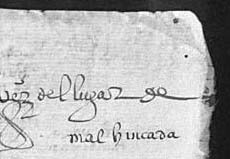 uez del lugar de
mal hincada